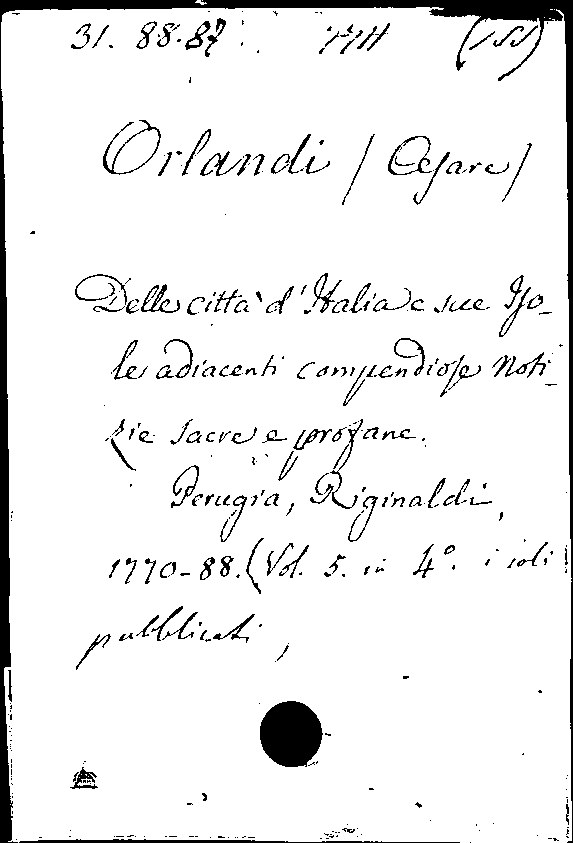 31. 88.87
Orlandi (Cesare)
Delle città d'Italia e sue Iso-
le adiacenti compendiose Noti-
zie sacre e profane.
Perugia, Riginaldi,
1770-88. (Vol. 5. in 4°. i soli
pubblicati,